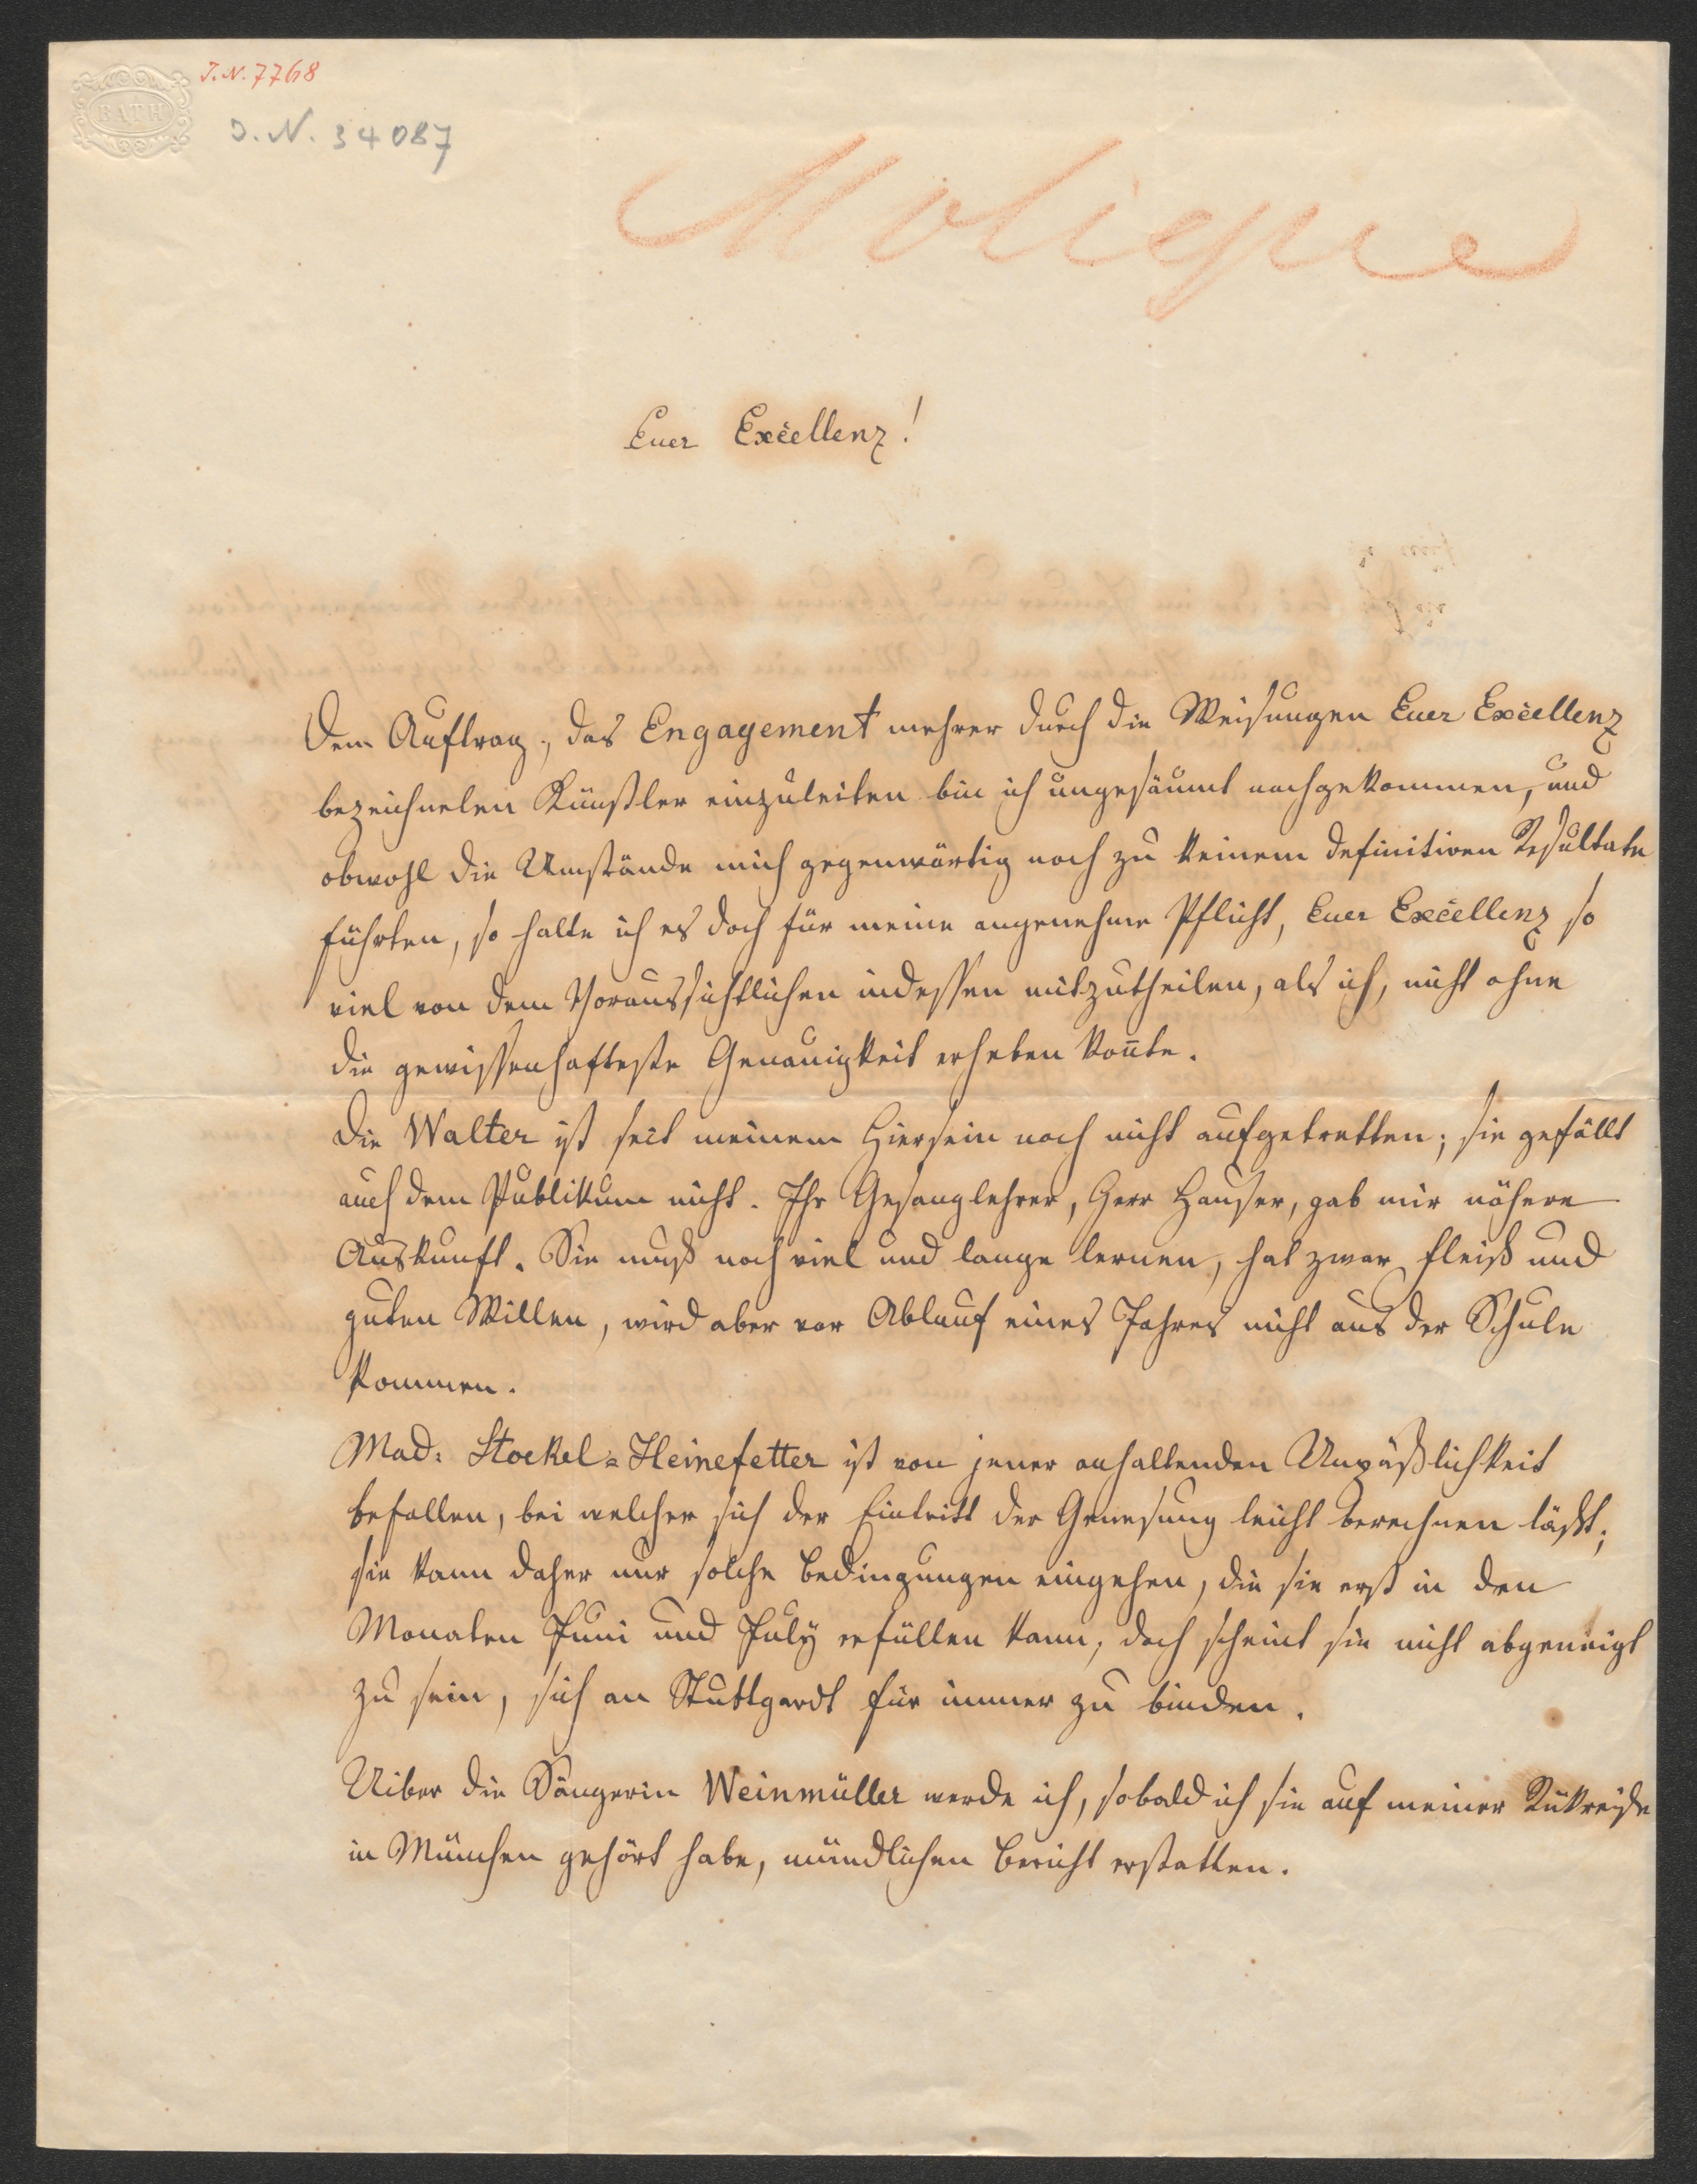 J. N. 7768
BATH
J. N. 34087
Molique
Euer Excellenz!
Dem Auftrag, das Engagement mehrer durch die Weisungen Euer Excellenz
bezeichneten Künstler einzuleiten bin ich ungesäumt nachgekommen, und
obwohl die Umstände mich gegenwärtig noch zu keinem definitiven Resultate
führten, so halte ich es doch für meine angenehme Pflicht, Euer Excellenz so
viel von dem Voraussichtlichen indessen mitzutheilen, als ich, nicht ohne
die gewissenhafteste Genauigkeit erheben kon̄te.
Die Walter ist seit meinem Hiersein noch nicht aufgetretten; sie gefällt
auch dem Publikum nicht. Ihr Gesanglehrer, Herr Hauser, gab mir nähere
Auskunft. Sie muß noch viel und lange lernen, hat zwar Fleiß und
guten Willen, wird aber vor Ablauf eines Jahres nicht aus der Schule
kommen.
Mad: Stockel=Heinefetter ist von jener anhaltenden Unpäßlichkeit
befallen, bei welcher sich der Eintritt der Genesung leicht berechnen läßt;
sie kann daher nur solche Bedingungen eingehen, die sie erst in den
Monaten Juni und July erfüllen kann, doch scheint sie nicht abgeneigt
zu sein, sich an Stuttgardt für immer zu binden.
Uiber die Sängerin Weinmüller werde ich, sobald ich sie auf meiner Rükreise
in München gehört habe, mündlichen Bericht erstatten.